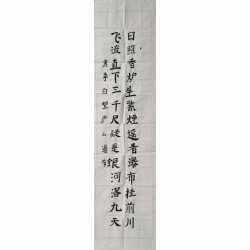 日照香炉生紫煙遥看瀑布挂前川
飞流直下三千尺疑是银河落九天
唐李白望庐山瀑布